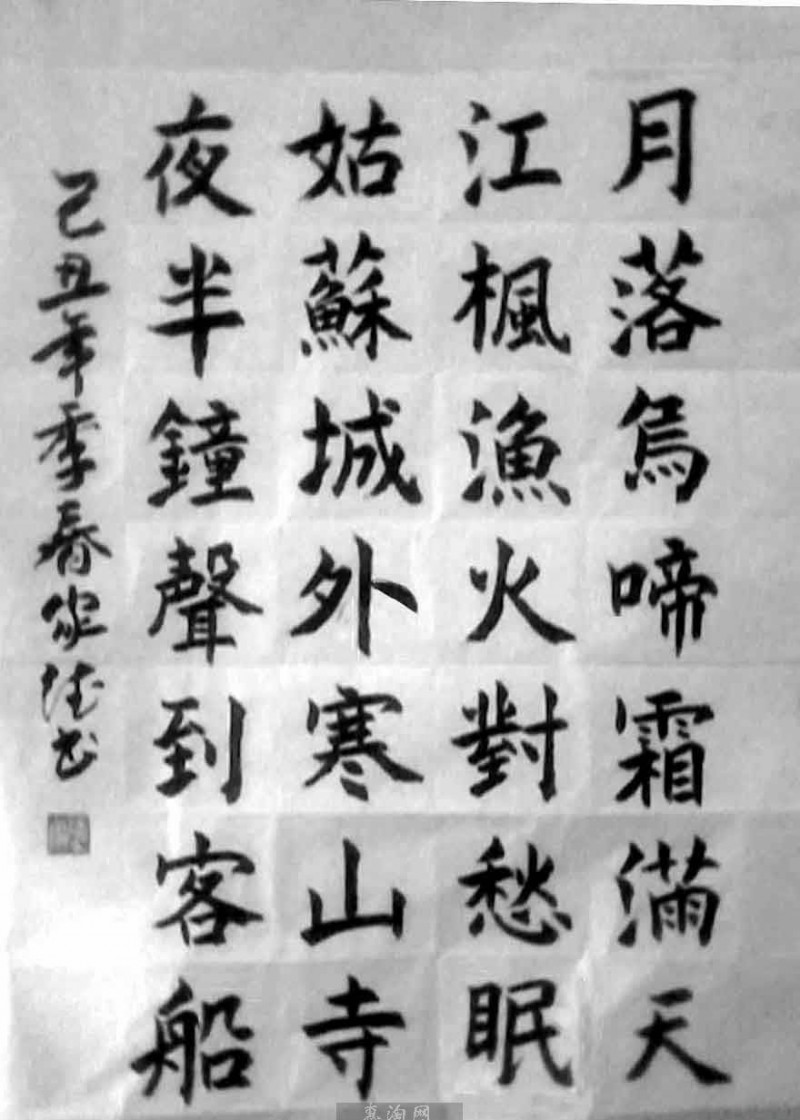 月落烏啼霜滿天
江楓漁火對愁眠
姑蘇城外寒山寺
夜半鐘聲到客船
己丑年季春家德书
惠淘网